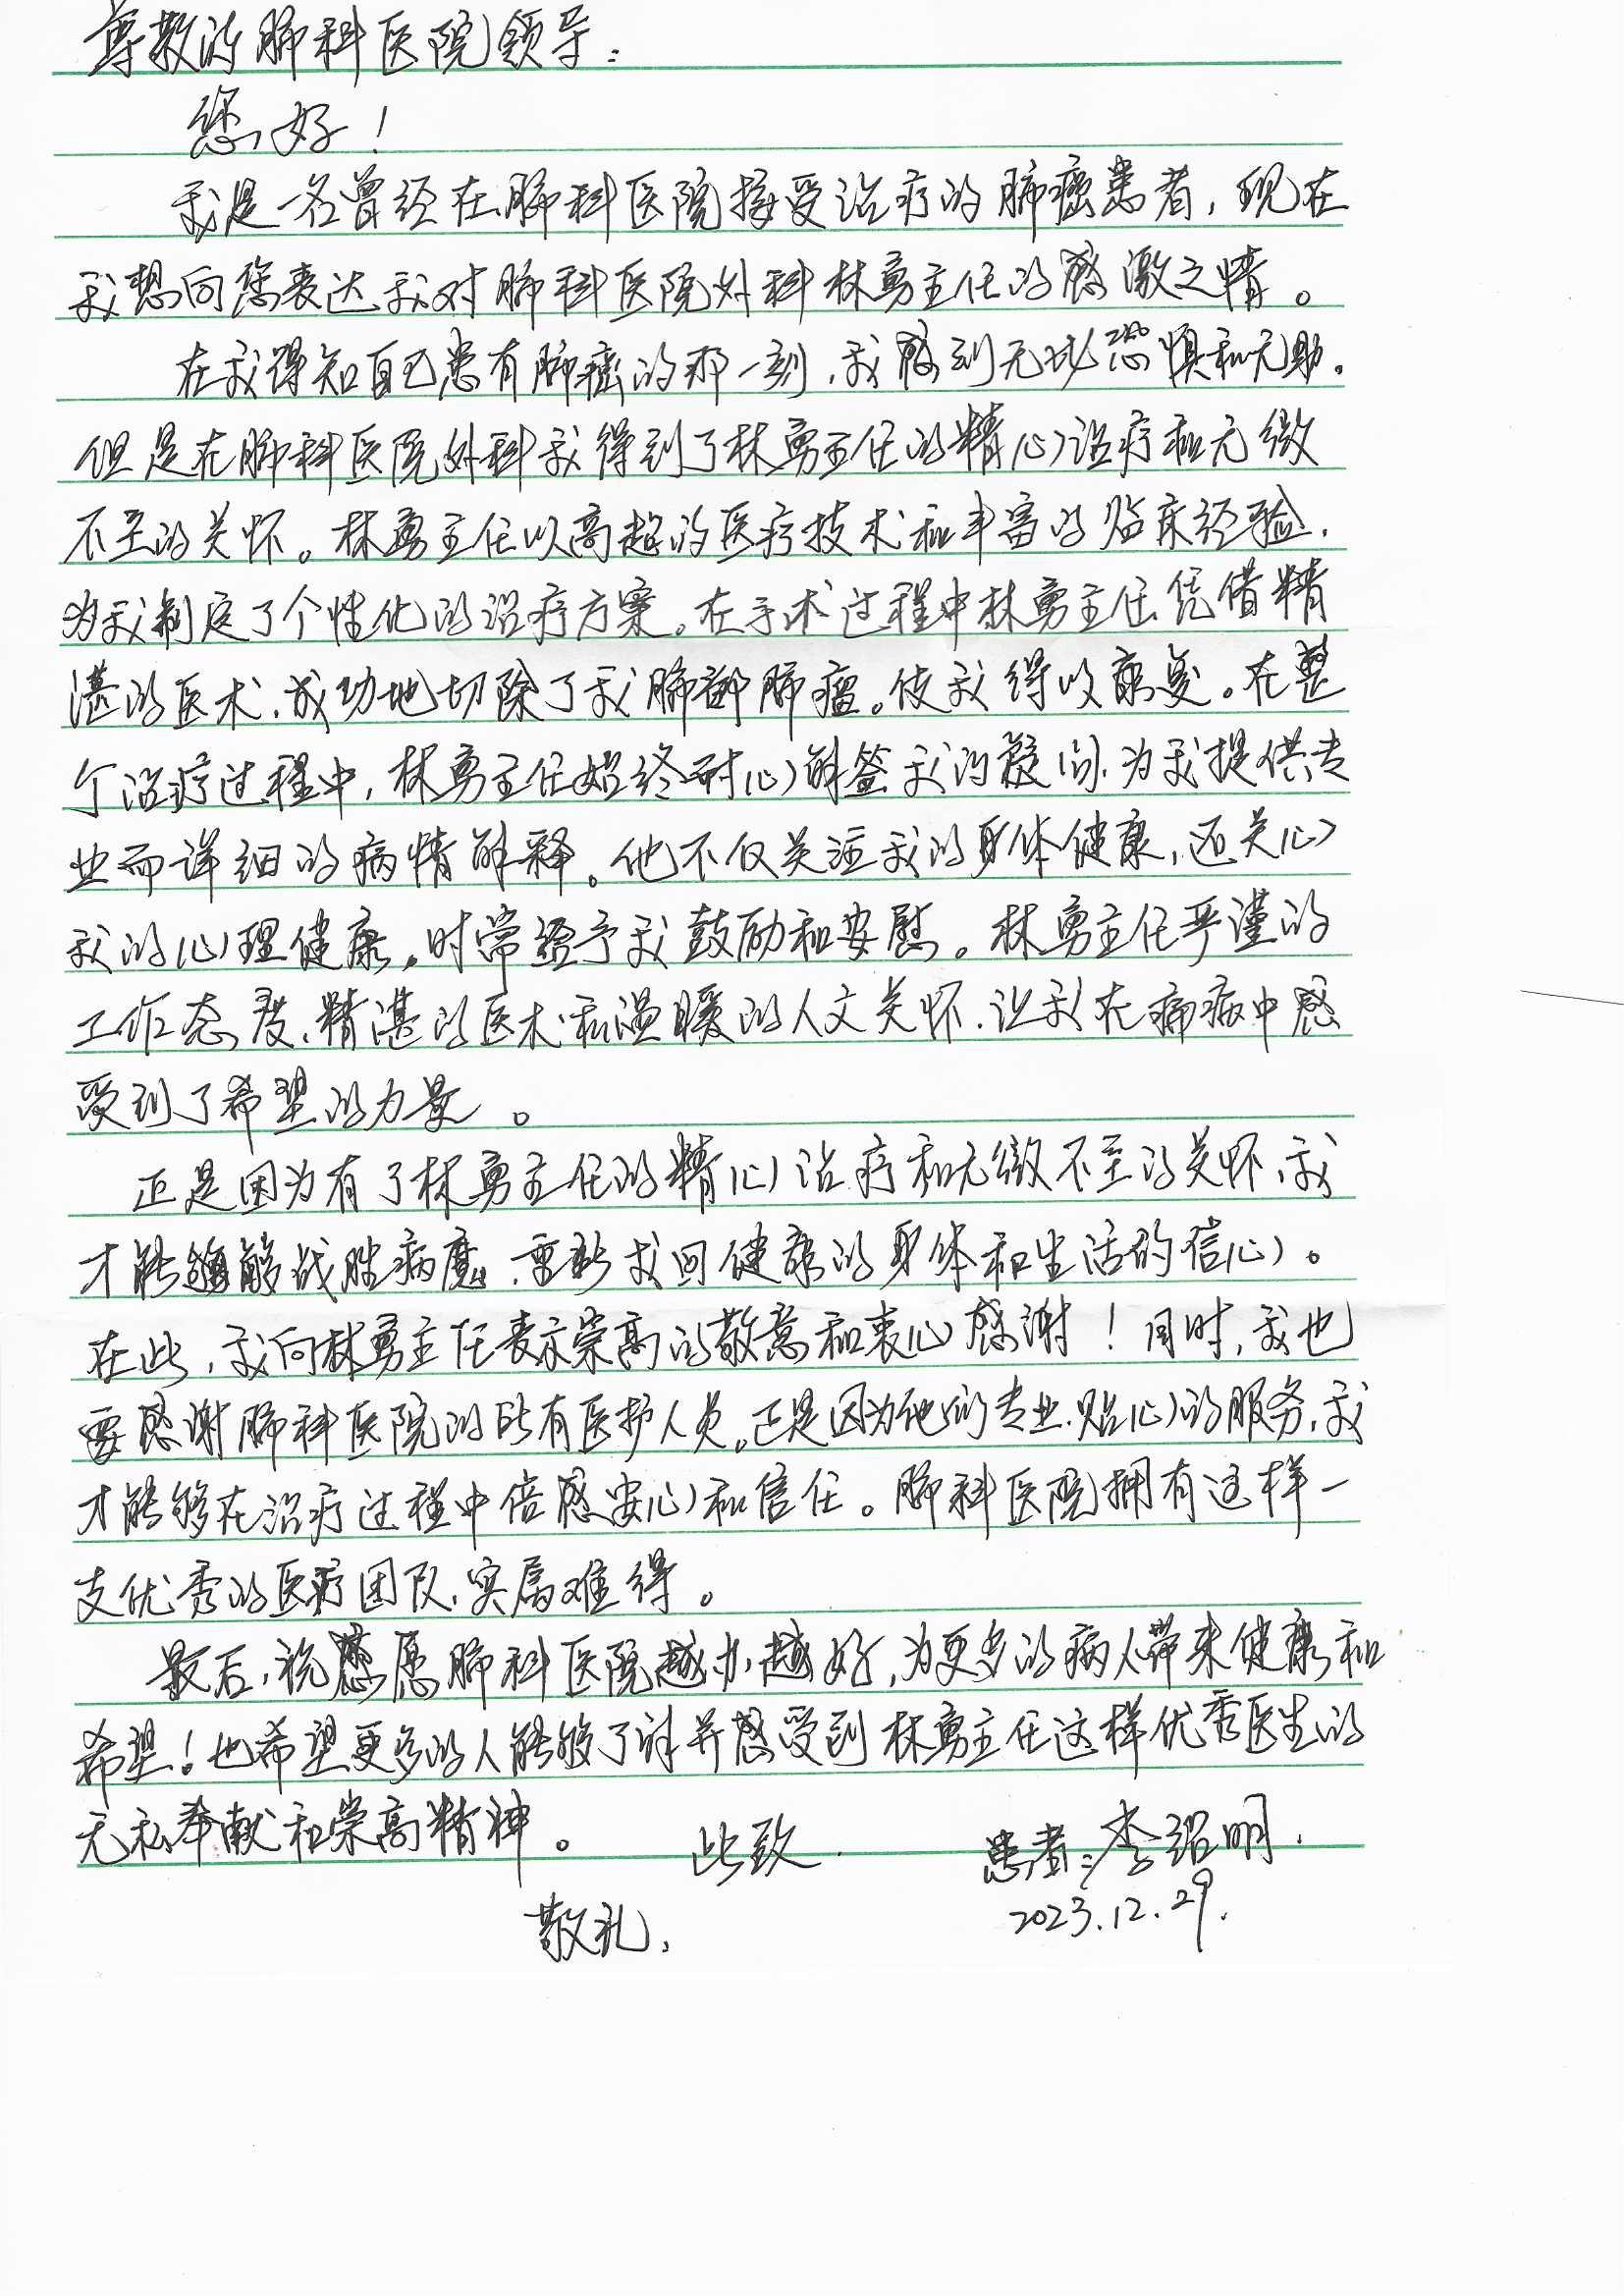 尊敬的肺科医院领导：
您好！
我是一名曾经在肺科医院接受治疗的肺癌患者，现在
我想向您表达我对肺科医院外科林勇主任的感激之情。
在我得知自己患有肺癌的那一刻，我感到无比恐惧和无助。
但是在肺科医院外科我得到了林勇主任的精心治疗和无微
不至的关怀。林勇主任以高超的医疗技术和丰富的临床经验，
为我制定了个性化的治疗方案。在手术过程中林勇主任凭借精
湛的医术，成功地切除了我肺部肿瘤。使我得以康复。在整
个治疗过程中，林勇主任始终耐心解答我的疑问，为我提供专
业而详细的病情解释。他不仅关注我的身体健康，还关心
我的心理健康，时常给予我鼓励和安慰。林勇主任严谨的
工作态度、精湛的医术和温暖的人文关怀，让我在病痛中感
受到了希望的力量。
正是因为有了林勇主任的精心治疗和无微不至的关怀，我
才能够战胜病魔，重新找回健康的身体和生活的信心。
在此，我向林勇主任表示崇高的敬意和衷心感谢！同时，我也
要感谢肺科医院的所有医护人员。正是因为他们的专业、贴心的服务，我
才能够在治疗过程中倍感安心和信任。肺科医院拥有这样一
支优秀的医疗团队，实属难得。
最后，祝愿肺科医院越办越好，为更多的病人带来健康和
希望！也希望更多的人能够了解并感受到林勇主任这样优秀医生的
无私奉献和崇高精神。 此致 患者：李绍明.
敬礼， 2023.12.29.